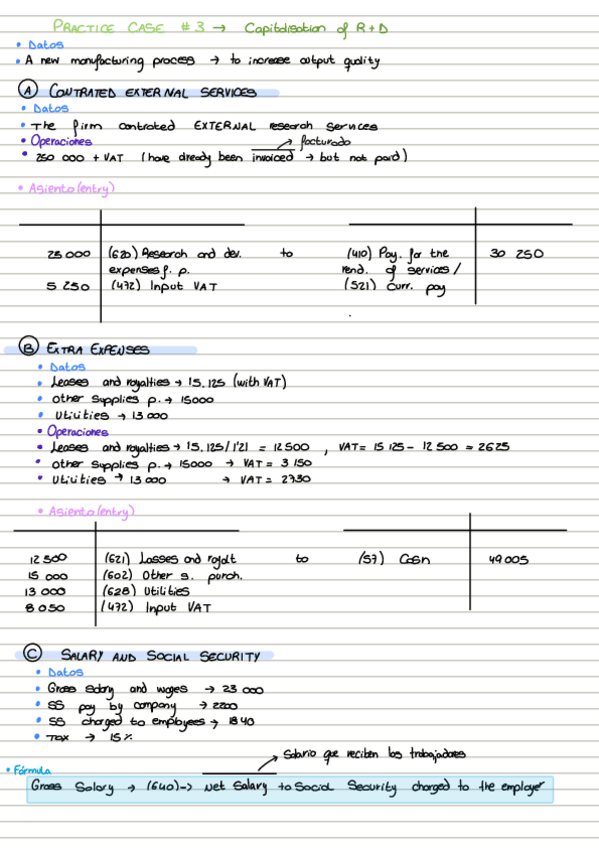 PRACTICE CASE #3 → Capitalisation of R+D
• Datos
• A new manufacturing process → to increase output quality
A CONTRATED EXTERNAL SERVICES
• Datos
• The firm contrated EXTERNAL research services
• Operaciones → facturado
• 250 000 + VAT (have already been invoiced → but not paid)
• Asiento (entry)
25 000 (620) Research and dev. to (410) Pay. for the 30 250
expenses f. p. rend. of services /
5 250 (472) Input VAT (521) curr. pay
B EXTRA EXPENSES
• Datos
• Leases and royalties → 15.125 (with VAT)
• Other supplies p. → 15000
• Utilities → 13 000
• Operaciones
• Leases and royalties → 15.125/1'21 = 12500 , VAT = 15 125 - 12 500 = 2625
• Other supplies p. → 15000 → VAT = 3 150
• Utilities → 13 000 → VAT = 2730
• Asiento (entry)
12 500 (621) Losses and royalt to (57) Cash 49 005
15 000 (602) Other s. purch.
13 000 (628) Utilities
8 050 (472) Input VAT
C SALARY AND SOCIAL SECURITY
• Datos
• Gross salary and wages → 23 000
• SS pay by company → 2200
• SS charged to employees → 1840
• Tax → 15%
→ Salario que reciben los trabajadores
• Fórmula
Gross Salary → (640) → Net Salary to Social Security charged to the employer